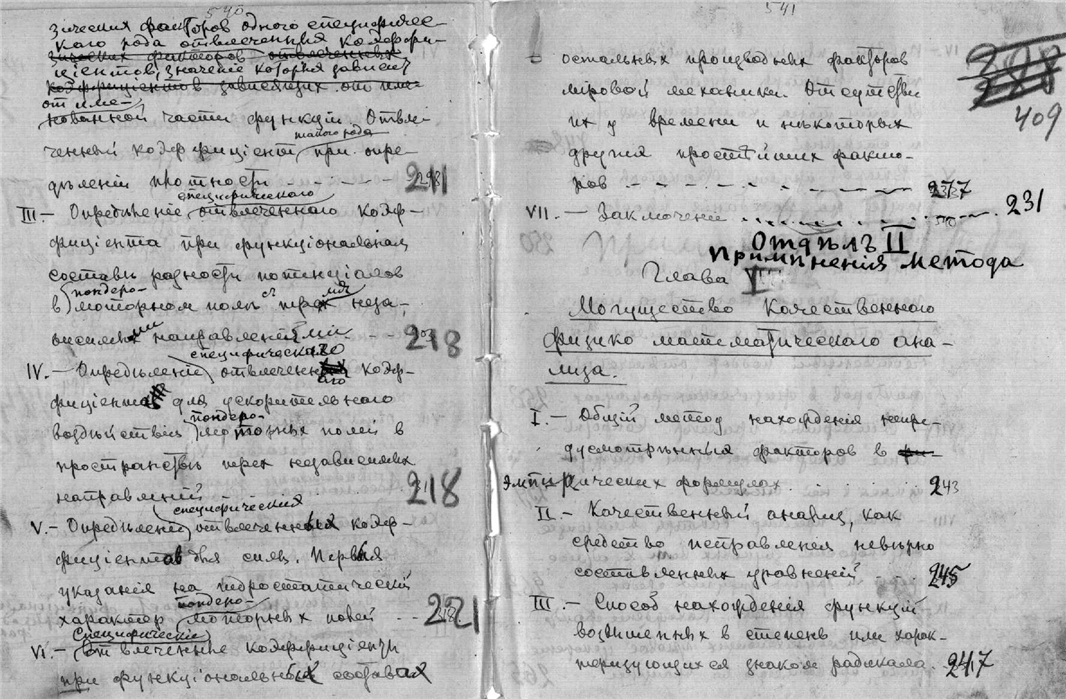 540
зическия факторов одного специфичес-
каго рода отвлеченныя коэффи-
циентов, значение которыя зависят
от име-
нованной части функций. Отвле-
такого рода
ченный коэффициент при опре-
делении плотности - - - - - 211
специфического
III - Определение отвлеченного коэф-
фициента при функциональном
составе разности потенциалов
пондеро-
в моторном поле с тремя неза-
висимыми направлениями - - - 218
специфического
IV. - Определение отвлеченного коэф-
фициента для ускорительного
пондеро-
воздействия моторных полей в
пространстве трех независимых
направлений - - - 218
специфических
V. - Определение отвлеченных коэф-
фициентов для силы. Первыя
указания на гидростатический
пондеро-
характер моторных полей - - 221
Специфические
VI. - Отвлеченные коэффициенты
при функциональных составах
541
409
остальных производных факторов
мировой механики. Отсутствие
их у времени и некоторых
других простейших факто-
ров - - - - - - - - 227
VII. - Заключение - - - - - - 231
Отделъ II
Применения метода
Глава
Могущество Качественного
физико математического ана-
лиза.
I. - Общий метод нахождения непре-
дусмотренных факторов в
эмпирических формулах. . . . . 243
II. - Качественный анализ, как
средство исправления неверно
составленных уравнений 245
III. - Способ нахождения функций
возвышенных в степень или харак-
теризующихся знаком радикала. 247